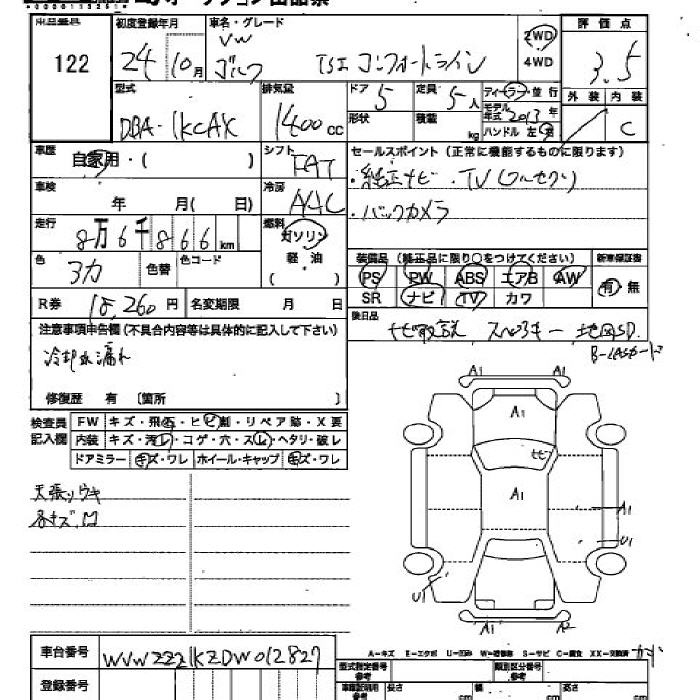 出品番号 122
初度登録年月 24 10月
車名・グレード
VW
ゴルフ TSI コンフォートライン
2WD
4WD
評価点 3.5
外装 内装
C
型式 DBA-1KCAX
排気量 1400 cc
ドア 5
定員 5人
ディーラー 並行
モデル年式 2013年
形状
積載 kg
ハンドル 左 右
車歴 自家用・( )
シフト FAT
セールスポイント (正常に機能するものに限ります)
・純正ナビ ・TV(フルセグ)
・バックカメラ
車検 年 月( 日)
冷房 AAC
走行 8万6千866 km
燃料 ガソリン
軽・油
( )
色
色替
色コード
装備品 (純正品に限り○をつけてください)
新車保証書
PS PW ABS エアB AW
SR ナビ TV カワ
有 無
R券 18,260円
名変期限 月 日
後日品 ナビ取説 スペアキー 地図SD
B-CASカード
注意事項申告欄 (不具合内容等は具体的に記入して下さい)
冷却水漏れ
修復歴 有 〔箇所 〕
検査員
記入欄
FW キズ・飛石・ヒビ割・リペア跡・X要
内装 キズ・汚レ・コゲ・穴・スレ・ヘタリ・破レ
ドアミラー キズ・ワレ ホイール・キャップ キズ・ワレ
天張リウキ
各キズ、凹
A1 A1
A1
ナビ
A1
A1
U1
U1
A1 A2
A-キズ E-エクボ U-凹み W-補修跡 S-サビ C-腐食 XX-交換済
車台番号 WVWZZZ1KZDW012827
登録番号
型式指定番号
参考
類別区分番号
参考
車庫証明用
参考
長さ cm
幅 cm
高さ cm